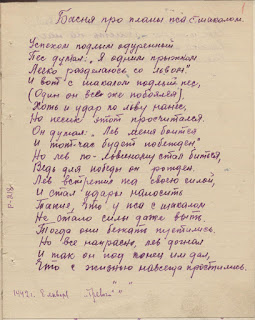 Басня про планы пса с шакалом.
Успехом подлым одуренный
Пес думал: "Я одним прыжком
Легко разделаюсь со львом"
И вот с шакалом подлый пес,
(Один он всё же побоялся)
Хоть и удар по льву нанес,
Но песик этот просчитался.
Он думал: "Лев меня боится
И тот-час будет побежден"
Но лев по-львиному стал биться,
Ведь для победы он рожден.
Лев встретил пса своею силой,
И стал удары наносить
Такие, что у пса с шакалом
Не стало силы даже выть.
Тогда они бежать пустились,
Но всё напрасно, лев догнал
И так он под конец им дал,
Что с жизнью навсегда простились.
1942г. 8 января